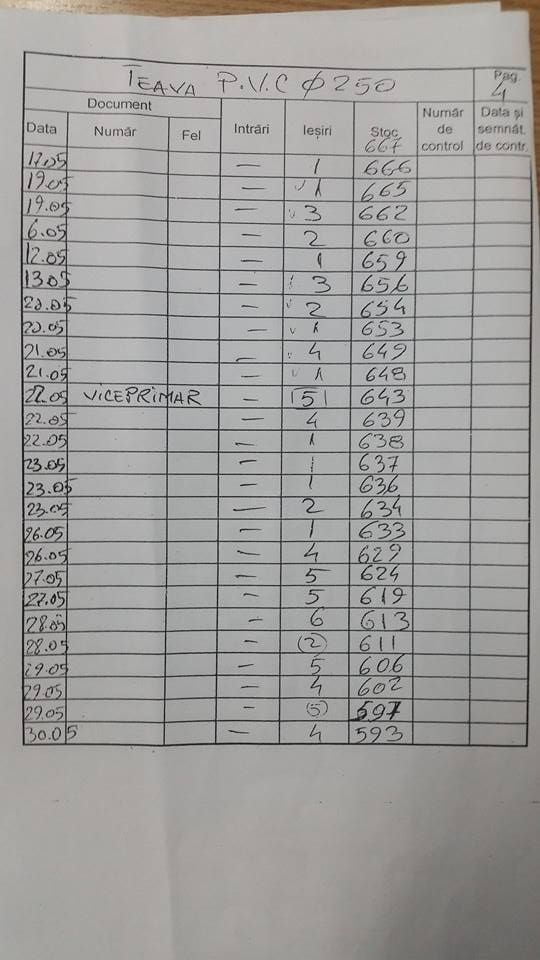 ȚEAVA P.V.C Ø 250 Pag. 4
Document
Data Număr Fel Intrări Ieșiri Stoc Număr de control Data și semnăt. de contr.
667
17.05 — 1 666
19.05 — 1 665
19.05 — 3 662
6.05 — 2 660
12.05 — 1 659
13.05 — 3 656
20.05 — 2 654
20.05 — 1 653
21.05 — 4 649
21.05 — 1 648
22.05 VICEPRIMAR — |5| 643
22.05 — 4 639
22.05 — 1 638
23.05 — 1 637
23.05 — 1 636
23.05 — 2 634
26.05 — 1 633
26.05 — 4 629
27.05 — 5 624
27.05 — 5 619
28.05 — 6 613
28.05 — (2) 611
29.05 — 5 606
29.05 — 4 602
29.05 — (5) 597
30.05 — 4 593